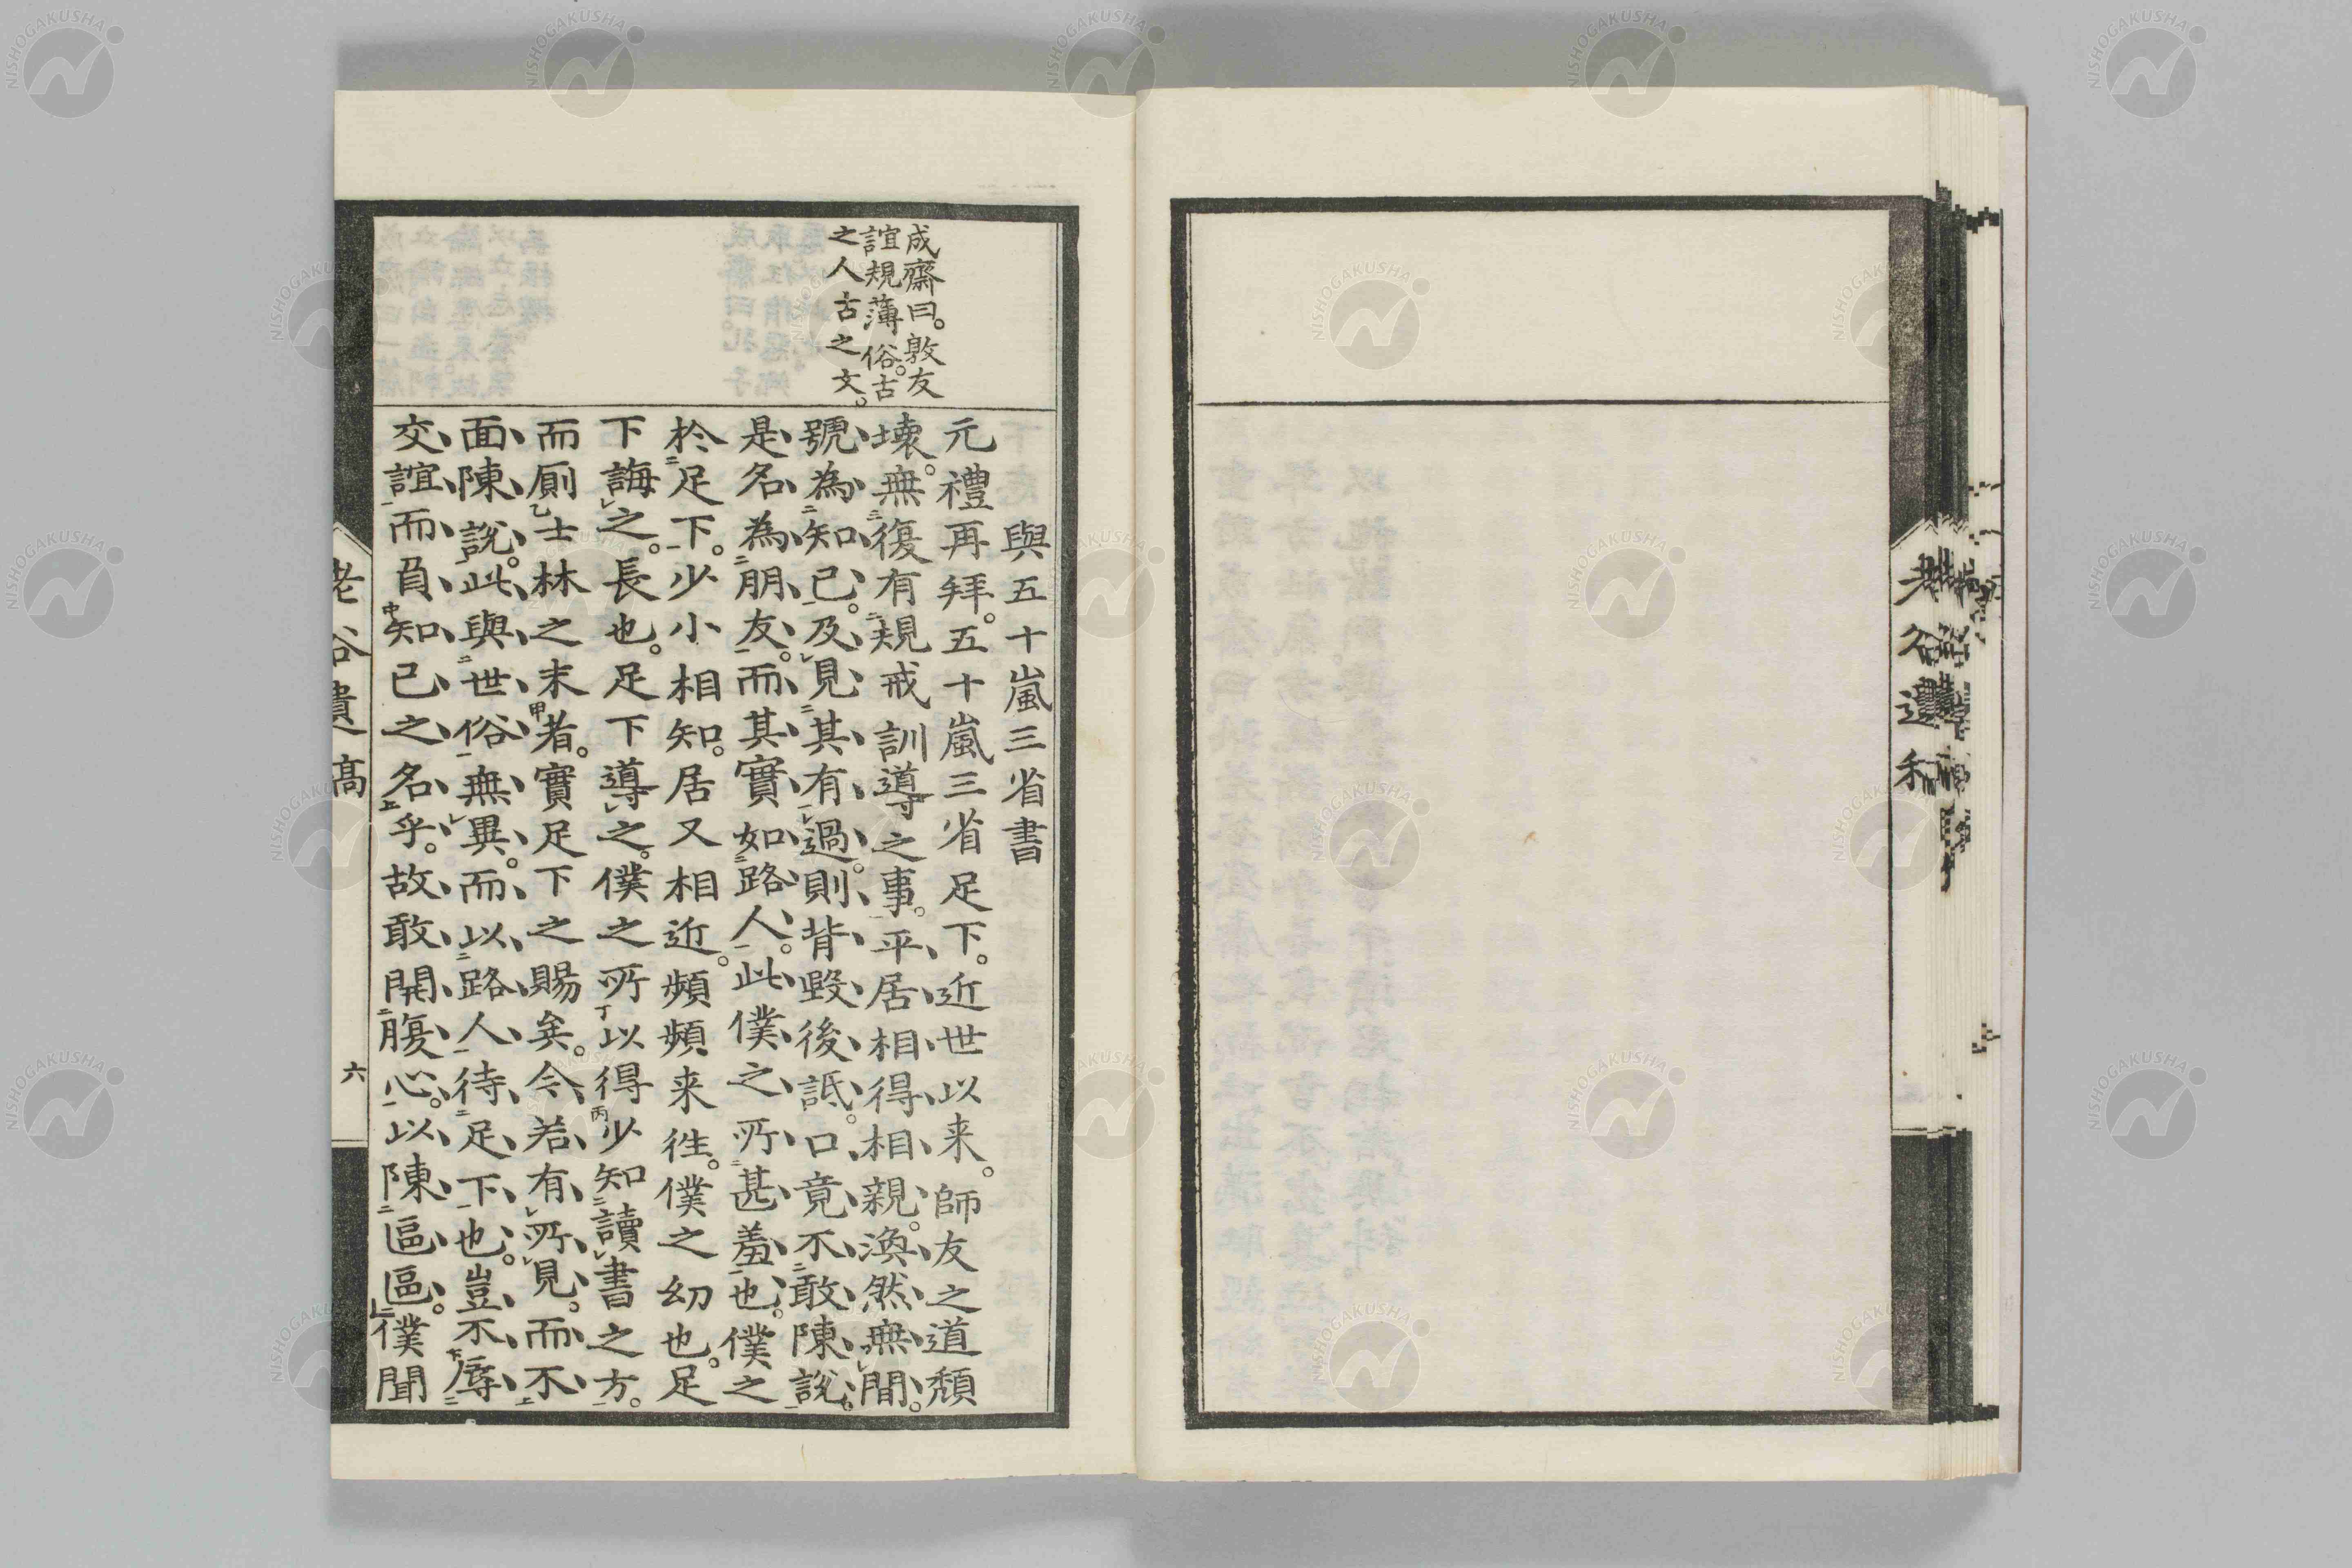 成齋曰。敦友
誼規薄俗。古
之人古之文。
與五十嵐三省書
元禮再拜。五十嵐三省足下。近世以来。師友之道頽
壞。無復有規戒訓導之事。平居相得相親。渙然無間。
號為知己。及見其有過。則背毀後詆。口竟不敢陳說。
是名為朋友。而其實如路人。此僕之所甚羞也。僕之
於足下。少小相知。居又相近。頻頻来往。僕之幼也。足
下誨之。長也。足下導之。僕之所以得少知讀書之方。
而厠士林之末者。實足下之賜矣。今若有所見。而不
面陳說。此與世俗無異。而以路人待足下也。豈不辱
交誼而負知己之名乎。故敢開腹心。以陳區區。僕聞
老谷遺稿
六
NISHOGAKUSHA